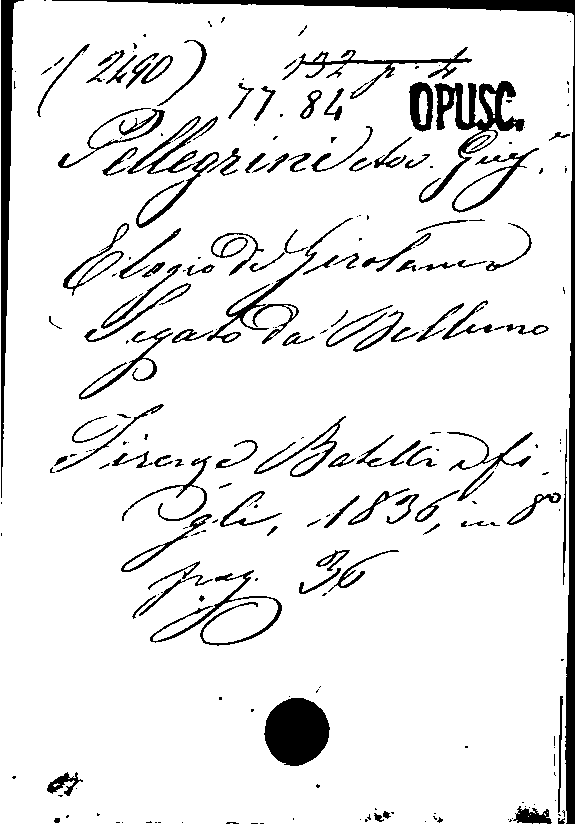 (2490) 132 p. 4
77.84 OPUSC.
Pellegrini Avv. Giuse.
Elogio di Girolamo
Segato da Belluno
Firenze Batelli e fi
gli, 1836, in 8º
pag. 36